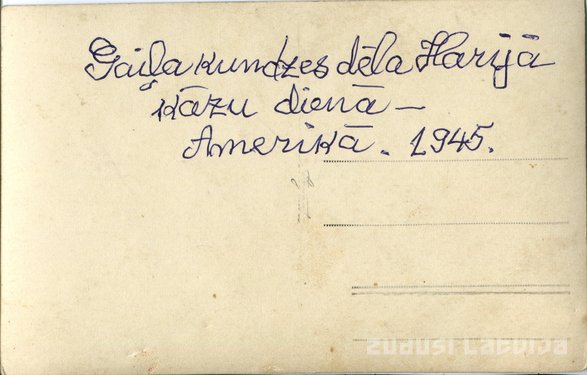 Gaiļa kundzes dēla Harijā
kāzu dienā –
Amerikā. 1945.
zudusi Latvija